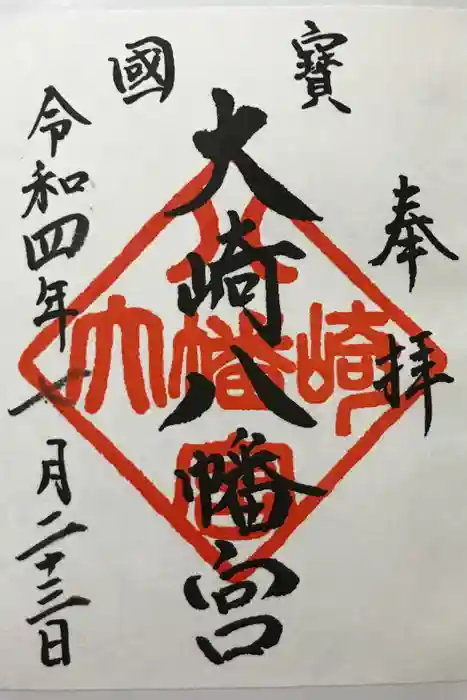 國寶
奉拝
大崎八幡宮
令和四年七月二十三日
八
大幡崎
宮